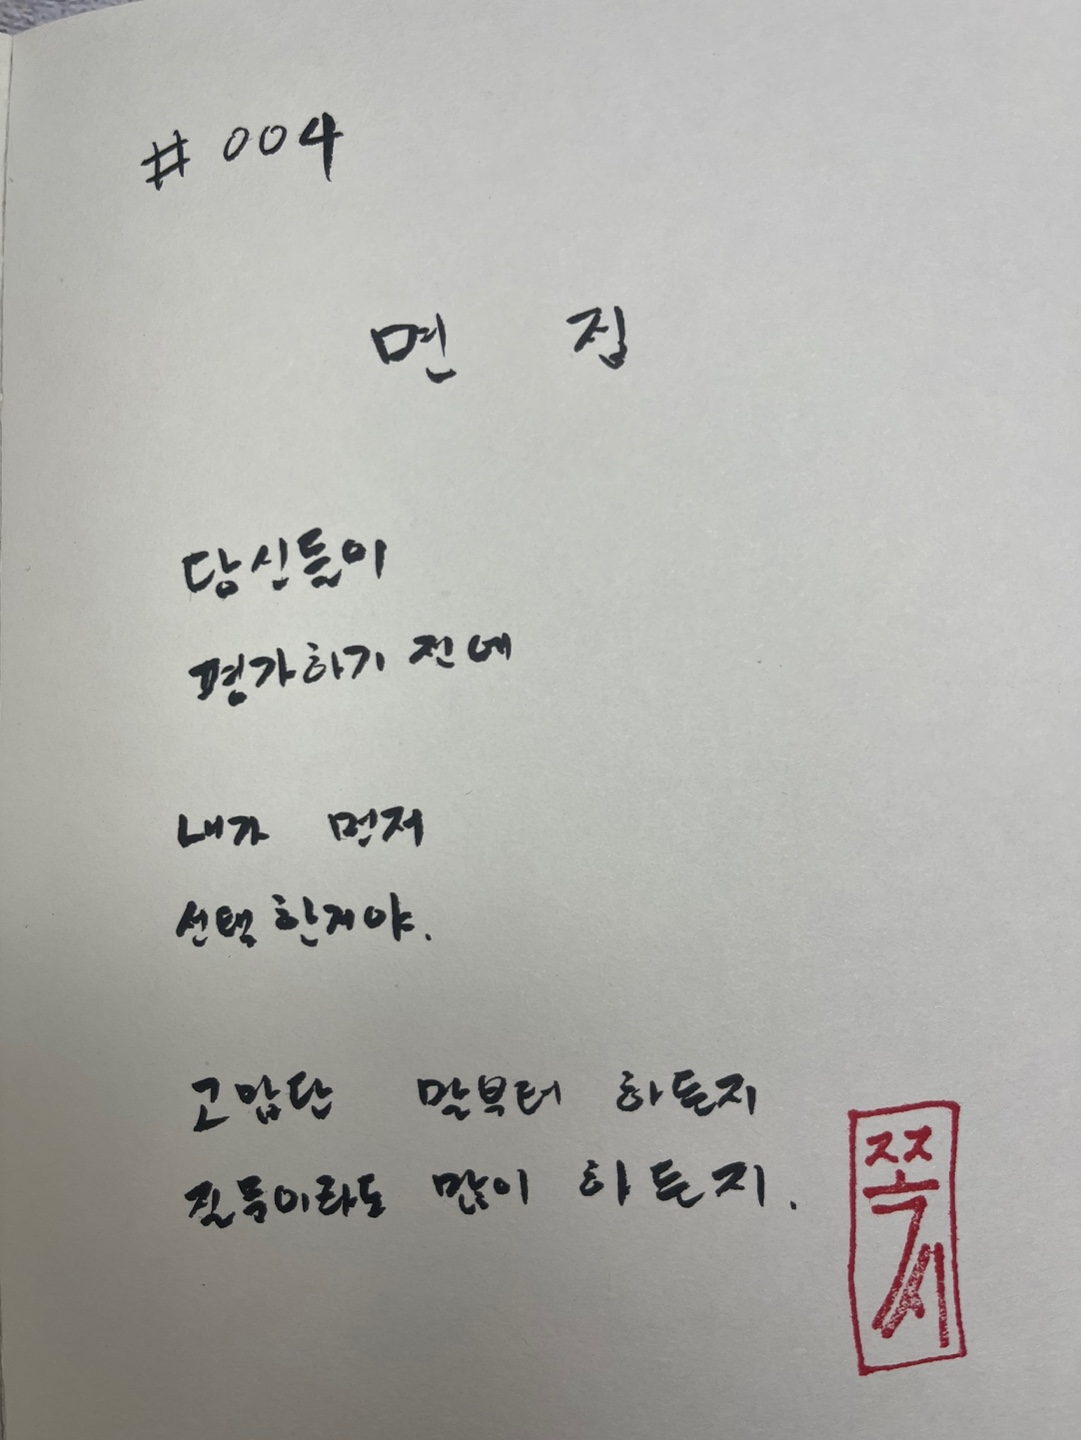 # 004
면 접
당신들이
평가하기 전에
내가 먼저
선택한거야.
고맙단 말부터 하든지
질문이라도 많이 하든지.
쪽시